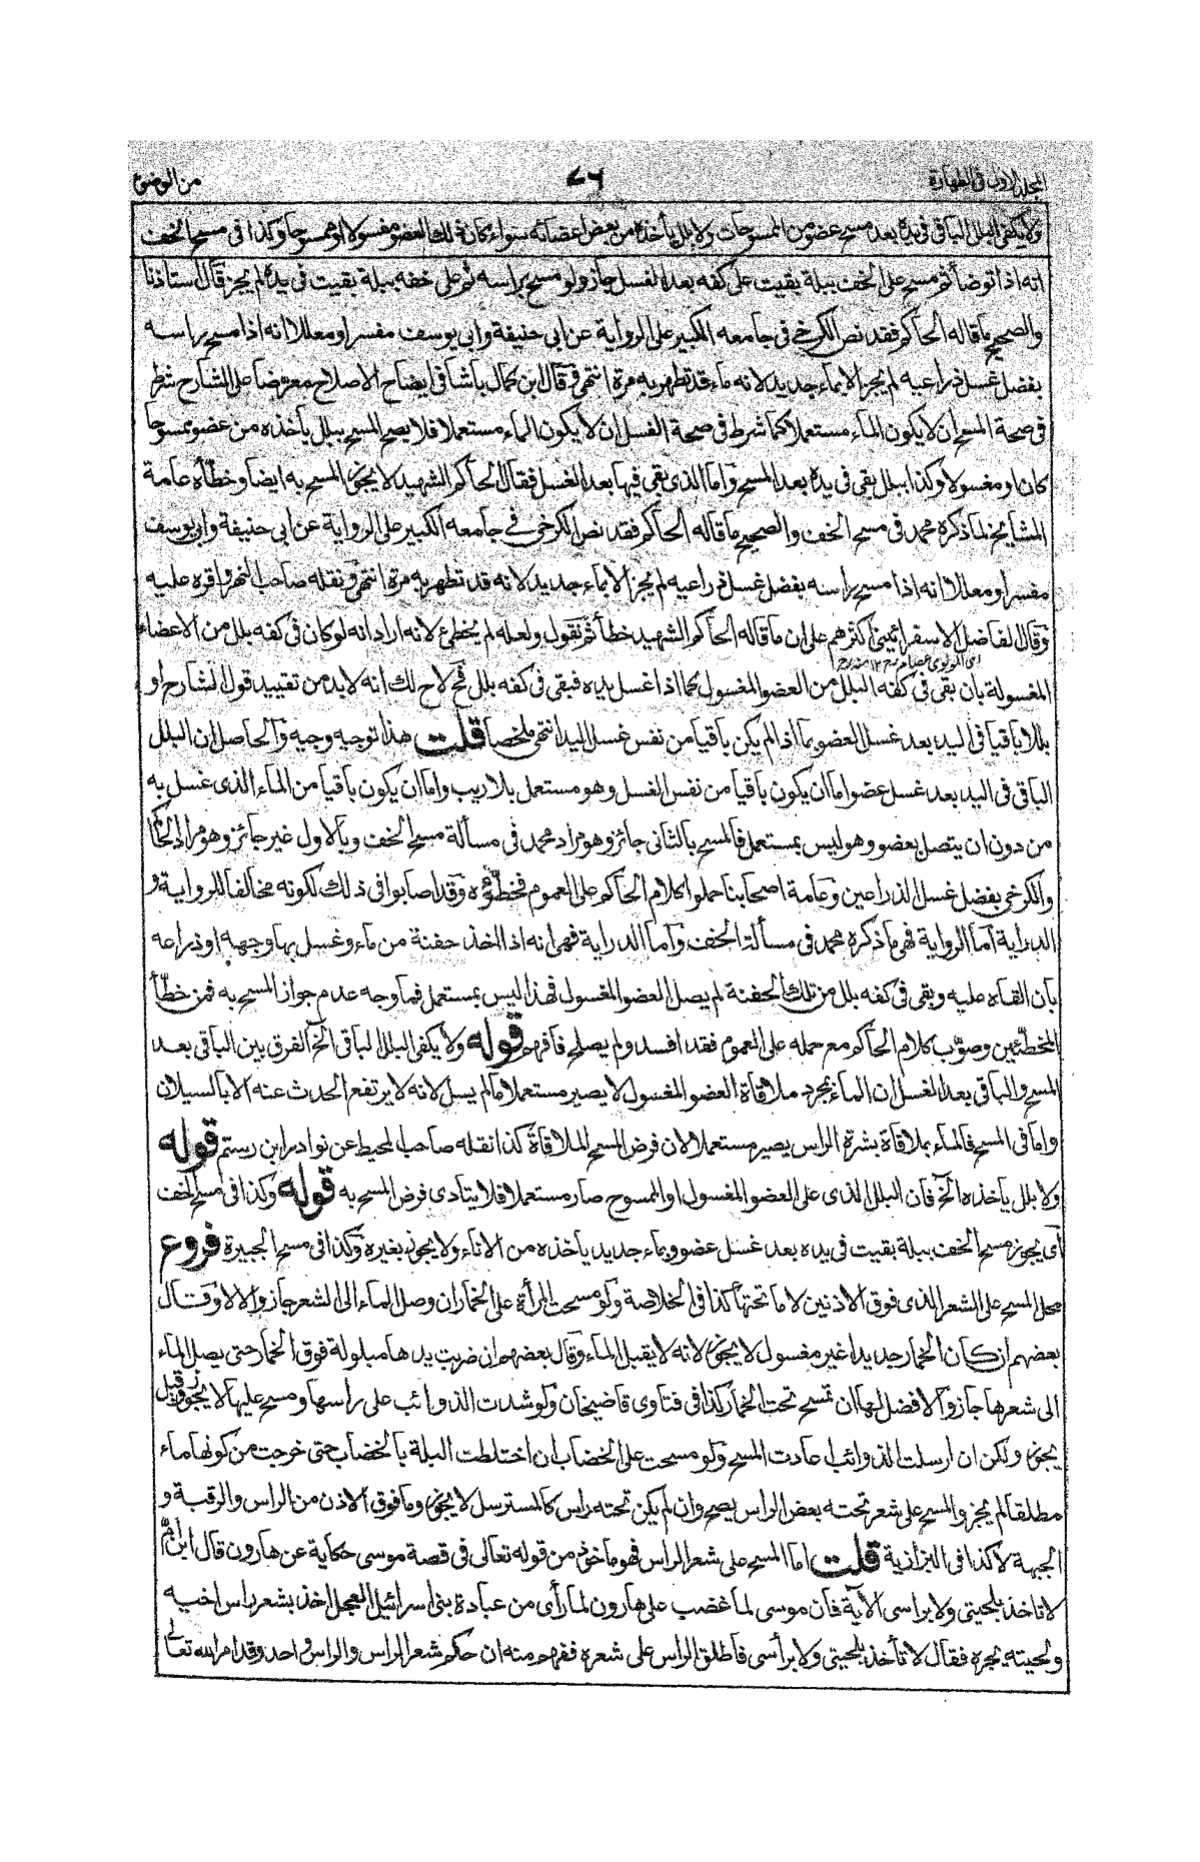 المجلد الاول فى الطهارة
٧٦
من الوضوء
ولا يكفى البلل الباقى فى يده بعد مسح عضو من الممسوحات ولا بلل يأخذه من بعض اعضائه سواء كان ذلك العضو مغسولا او ممسوحا وكذا فى مسح الخف
انه اذا توضأ ثم مسح على الخف ببلة بقيت على كفه بعد الغسل جاز ولو مسح براسه ثم على خفه ببلة بقيت فى يده لم يجز قال استاذنا
والصحيح ما قاله الحاكم فقد نص الكرخى فى جامعه الكبير على الرواية عن ابى حنيفة وابى يوسف مفسرا ومعللا انه اذا مسح راسه
بفضل غسل ذراعيه لم يجز الا بماء جديد لانه ماء قد تطهر به مرة انتهى وقال ابن كمال باشا فى ايضاح الاصلاح معرضا على الشارح شرط
فى صحة المسح ان لا يكون الماء مستعملا كما شرط فى صحة الغسل ان لا يكون الماء مستعملا فلا يصح المسح ببلل يأخذه من عضو ممسوحا
كان او مغسولا وكذا ببلل بقى فى يده بعد المسح واما الذى بقى فيها بعد الغسل فقال الحاكم الشهيد لا يجوز المسح به ايضا وخطأه عامة
المشايخ لما ذكره محمد فى مسح الخف والصحيح ما قاله الحاكم فقد نص الكرخى فى جامعه الكبير على الرواية عن ابى حنيفة وابى يوسف
مفسرا ومعللا انه اذا مسح راسه بفضل غسل ذراعيه لم يجز الا بماء جديد لانه قد تطهر به مرة انتهى ونقله صاحب النهر واقره عليه
وقال الفاضل الاسفرائينى اكثرهم على ان ما قاله الحاكم الشهيد خطأ ثم نقول ولعله لم يخطئ لانه اراد انه لو كان فى كفه بلل من الاعضاء
اى المولوى عصام
المغسولة بان بقى فى كفه البلل من العضو المغسول كما اذا غسل يديه فبقى فى كفه بلل فح لاح لك انه لا بد من تقييد قول الشارح او
بللا باقيا فى اليد بعد غسل العضو بما اذا لم يكن باقيا من نفس غسل اليد انتهى ملخصا قلت هذا توجيه وجيه والحاصل ان البلل
الباقى فى اليد بعد غسل عضو اما ان يكون باقيا من نفس الغسل وهو مستعمل بلا ريب واما ان يكون باقيا من الماء الذى غسل به
من دون ان يتصل بعضو وهو ليس بمستعمل فالمسح بالثانى جائز وهو مراد محمد فى مسألة مسح الخف وبالاول غير جائز وهو مراد الحاكم
والكرخى بفضل غسل الذراعين وعامة اصحابنا حملوا كلام الحاكم على العموم فخطؤه وقد اصابوا فى ذلك لكونه مخالفا للرواية و
الدراية اما الرواية فهى ما ذكره محمد فى مسألة الخف واما الدراية فهى انه اذا اخذ حفنة من ماء وغسل بها وجهه او ذراعه
بان القاه عليه وبقى فى كفه بلل من تلك الحفنة لم يصل العضو المغسول فهذا ليس بمستعمل فما وجه عدم جواز المسح به فمن خطأ
المخطئين وصوب كلام الحاكم مع حمله على العموم فقد افسد ولم يصلح فافهم قوله ولا يكفى البلل الباقى الخ الفرق بين الباقى بعد
المسح والباقى بعد الغسل ان الماء بمجرد ملاقاة العضو المغسول لا يصير مستعملا ما لم يسل لانه لا يرتفع الحدث عنه الا بالسيلان
واما فى المسح فالماء بملاقاة بشرة الراس يصير مستعملا لان فرض المسح الملاقاة كذا نقله صاحب المحيط عن نوادر ابن رستم قوله
ولا بلل يأخذه الخ فان البلل الذى على العضو المغسول او الممسوح صار مستعملا فلا يتادى فرض المسح به قوله وكذا فى مسح الخف
اى يجوز مسح الخف ببلة بقيت فى يده بعد غسل عضو وبماء جديد يأخذه من الاناء ولا يجوز بغيره وكذا فى مسح الجبيرة فروع
محل المسح على الشعر الذى فوق الاذنين لا ما تحتهما كذا فى الخلاصة ولو مسحت المرأة على الخمار ان وصل الماء الى الشعر جاز والا لا وقال
بعضهم ان كان الخمار جديدا غير مغسول لا يجوز لانه لا يقبل الماء وقال بعضهم ان ضربت يدها مبلولة فوق الخمار حتى يصل الماء
الى شعرها جاز والافضل لها ان تمسح تحت الخمار كذا فى فتاوى قاضيخان ولو شدت الذوائب على راسها ومسح عليها لا يجوز وقيل
يجوز ولكن ان ارسلت الذوائب اعادت المسح ولو مسحت على الخضاب ان اختلطت البلة بالخضاب حتى خرجت من كونها ماء
مطلقا لم يجز والمسح على شعر تحته بعض الراس يصح وان لم يكن تحته راس كالمسترسل لا يجوز وما فوق الاذن من الراس والرقبة و
الجبهة لا كذا فى البزازية قلت اما المسح على شعر الراس فهو ماخوذ من قوله تعالى فى قصة موسى حكاية عن هارون قال ابن ام
لا تاخذ بلحيتى ولا براسى الآية فان موسى لما غضب على هارون لما رأى من عبادة بنى اسرائيل العجل اخذ بشعر راس اخيه
ولحيته يجره فقال لا تأخذ بلحيتى ولا برأسى فاطلق الراس على شعره ففهم منه ان حكم شعر الراس والراس واحد وقد امر الله تعالى